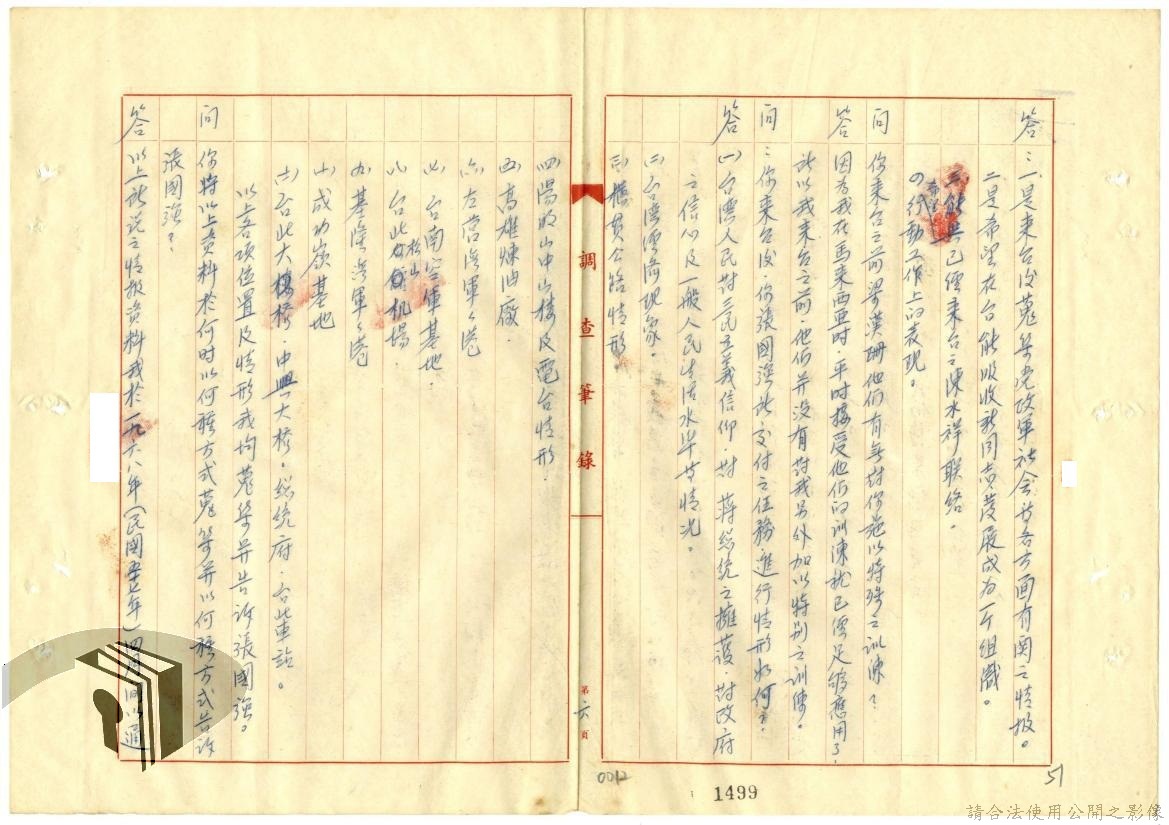 答：一是來台後蒐集党政軍社会等各方面有関之情报。
二是希望在台能吸收新同志发展成为一个组織。
三能與已經来台之陳水祥联络。
希望
四行動工作上的表現。
问 你来台之前梁漢珊他们有無对你施以特殊之訓練？
答 因为我在馬来西亞时，平时接受他们的訓陳就已經足够應用了，
所以我来台之前，他们并没有对我另外加以特别之訓練。
问：你来台後，你張國强所交付之任務進行情形如何？
答 (一)台灣人民对三民主義信仰，对 蒋总统之擁護，对政府
之信心及一般人民生活水準等情况。
(二)台灣經濟現象。
(三)横貫公路情形。
調查筆錄
第六頁
(四)陽明山中山樓及電台情形。
(五)高雄煉油廠。
(六)左营海軍軍港
(七)台南空軍基地。
(八)台北松山机場。
(九)基隆海軍軍港
(十)成功嶺基地
(六)台北大橋，中興大桥。总统府，台北車站。
以上各項位置及情形我均蒐集并告诉張國强。
问 你将以上资料於何时以何種方式蒐集并以何種方式告訴
張國强？
答 以上所说之情报资料我於一九六八年(民國五七年)四月间以通
0012
1499
51
請合法使用公開之影像